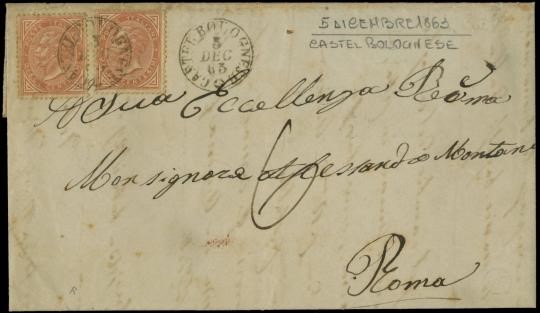 5 DICEMBRE 1863
CASTEL BOLOGNESE
CASTEL BOLOGNESE
5
DEC
65
A Sua Eccellenza Rma
Monsignore Alessandro Montani
6
Roma